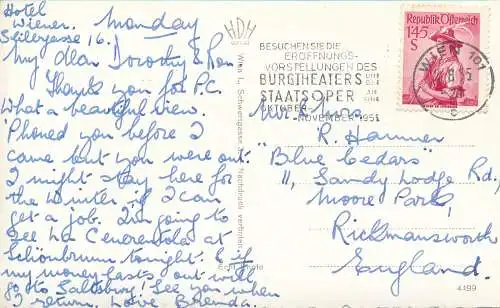 Hotel
Wiener.
Monday
Seilergasse 16.
My dear Dorothy & Ron.
Thank you for P.C.
What a beautiful view.
'Phoned you before I
came but you were out.
I might stay here for
the Winter if I can
get a job. I'm going to
see La Cenerentola at
Schönbrunn tonight. & if
my money lasts out will
go to Saltsburg! See you when
I return. Love. Brenda.
HDH
Wien I., Schwertgasse
Nachdruck verboten
Echte Photo
BESUCHEN SIE DIE
ERÖFFNUNGS-
VORSTELLUNGEN DES
BURGTHEATERS
STAATSOPER
OKTOBER-
NOVEMBER 1955
Republik Österreich
1·45
S
WIEN 101
Mr. & Mrs
R. Hammer
"Blue Cedars"
11, Sandy Lodge Rd,
Moore Park,
Rickmansworth
England.
4499